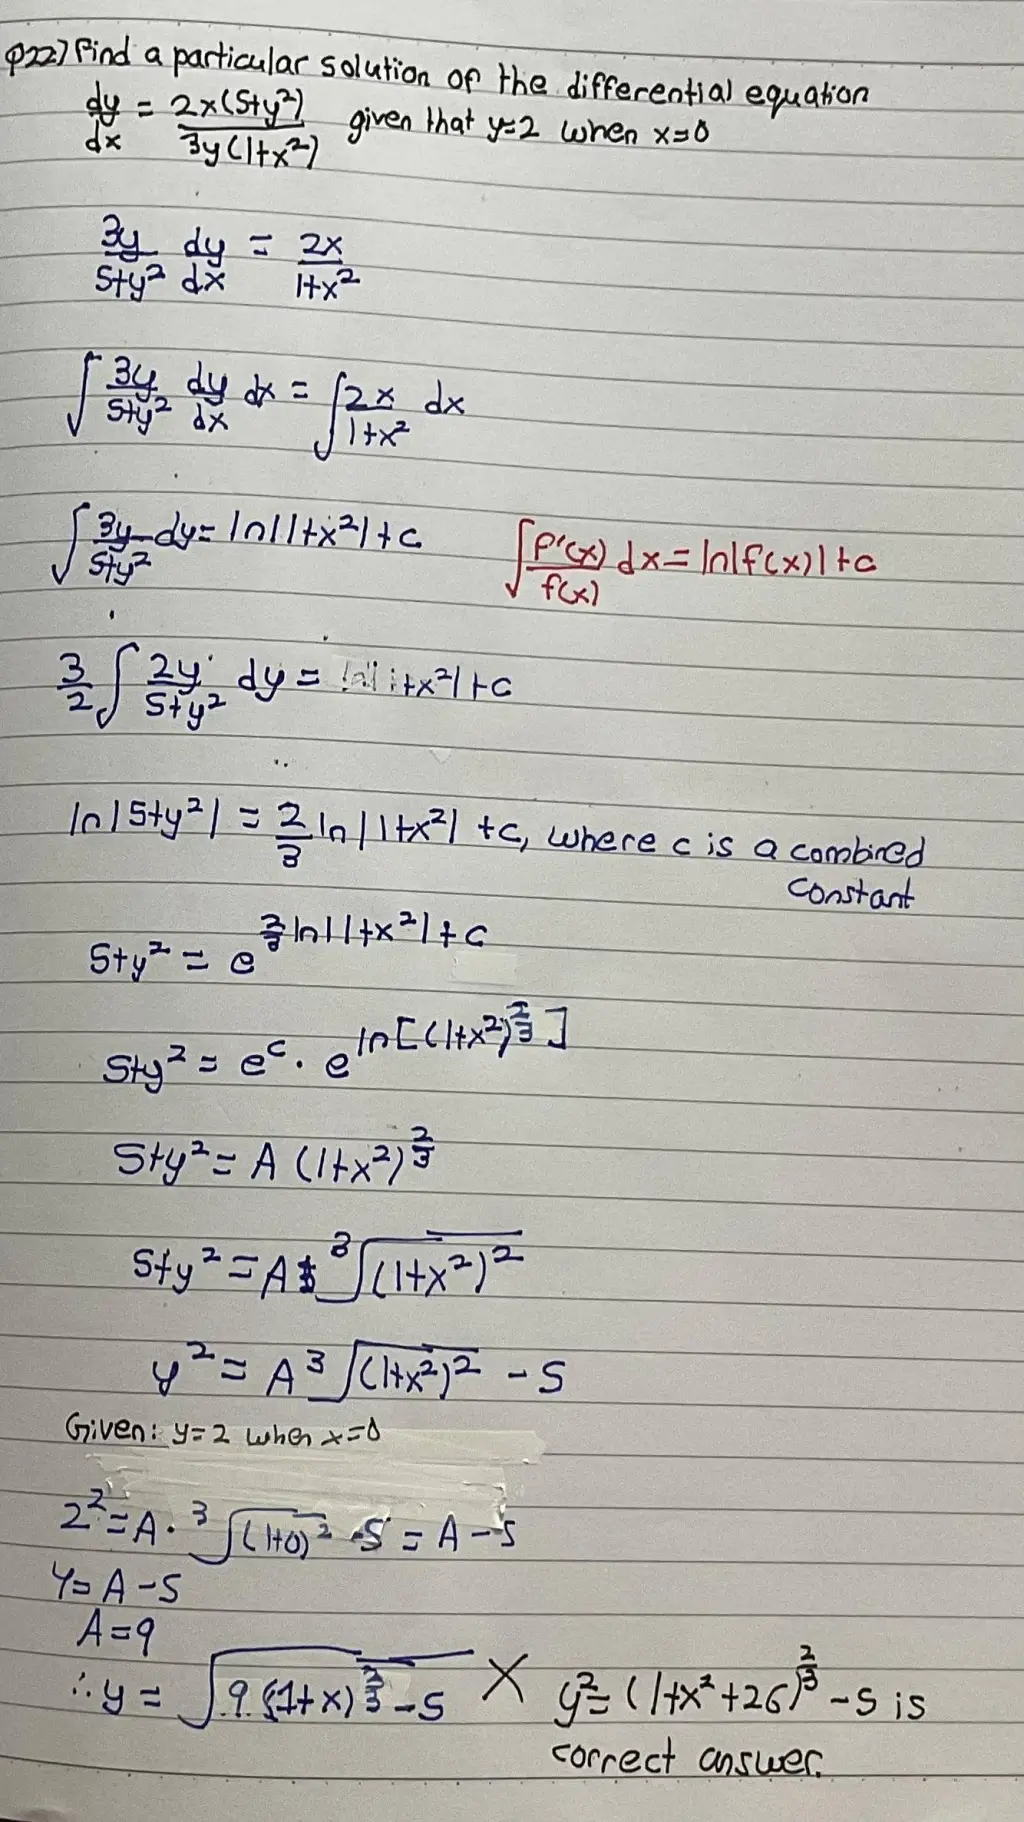 Q22) Find a particular solution of the differential equation
dy/dx = 2x(5+y²)/3y(1+x²) given that y=2 when x=0
3y/5+y² dy/dx = 2x/1+x²
∫ 3y/5+y² dy/dx dx = ∫ 2x/1+x² dx
∫ 3y/5+y² dy = ln|1+x²|+c ∫ f'(x)/f(x) dx = ln|f(x)|+c
3/2 ∫ 2y/5+y² dy = ln|1+x²|+c
ln|5+y²| = 2/3 ln|1+x²| +c, where c is a combined
constant
5+y² = e^(2/3 ln|1+x²|+c)
5+y² = e^c · e^(ln[(1+x²)^(2/3)])
5+y² = A (1+x²)^(2/3)
5+y² = A ³√((1+x²)²)
y² = A ³√((1+x²)²) - 5
Given: y=2 when x=0
2² = A · ³√((1+0)²) -5 = A-5
4 = A-5
A=9
∴ y = √(9(1+x)^(2/3) -5) X y² = (1+x²+26)^(2/3) -5 is
correct answer.